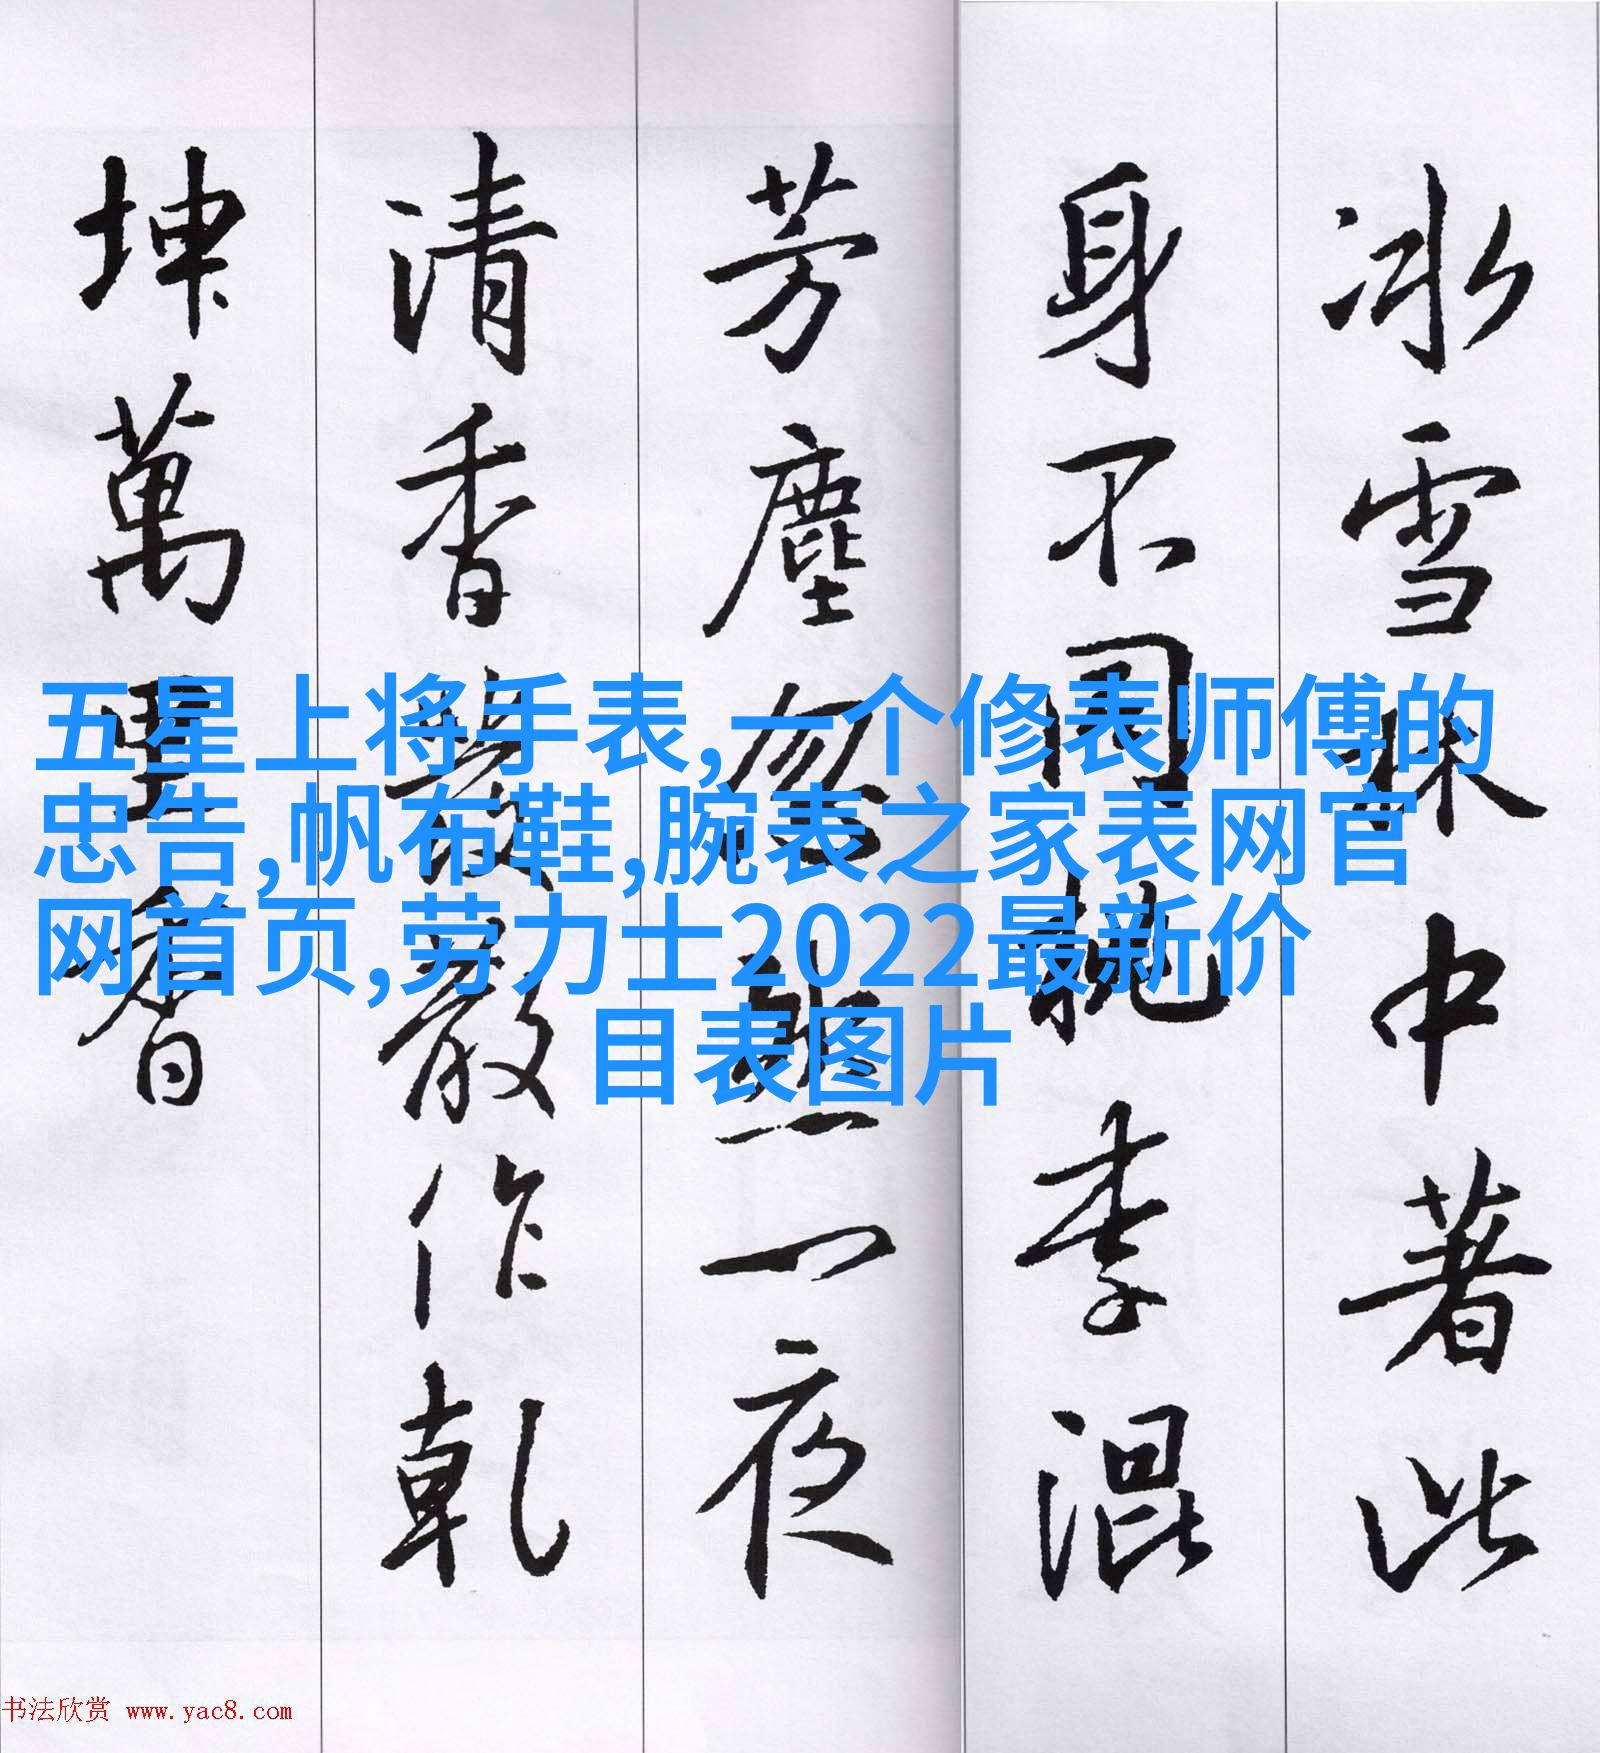 冰雪林中著此
身不同桃李混
芳塵忽然一夜
清香發散作乾
坤萬里春
五星上将手表,一个修表师傅的
忠告,帆布鞋,腕表之家表网官
网首页,劳力士2022最新价
目表图片
书法欣赏 www.yac8.com